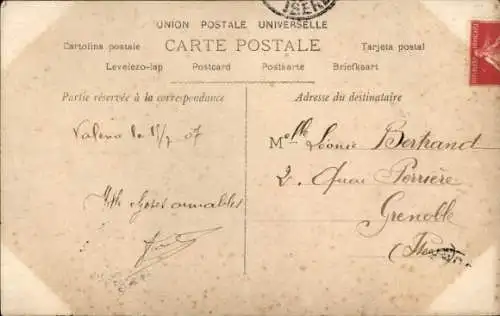 ISÈRE
UNION POSTALE UNIVERSELLE
Cartolina postale CARTE POSTALE Tarjeta postal
Levelezo-lap Postcard Postkarte Briefkaart
Partie réservée à la correspondance
Adresse du destinataire
Valence le 15/7 07
Melle Léonie Bertrand
2. Quai Perrière
Mille choses aimables
Grenoble